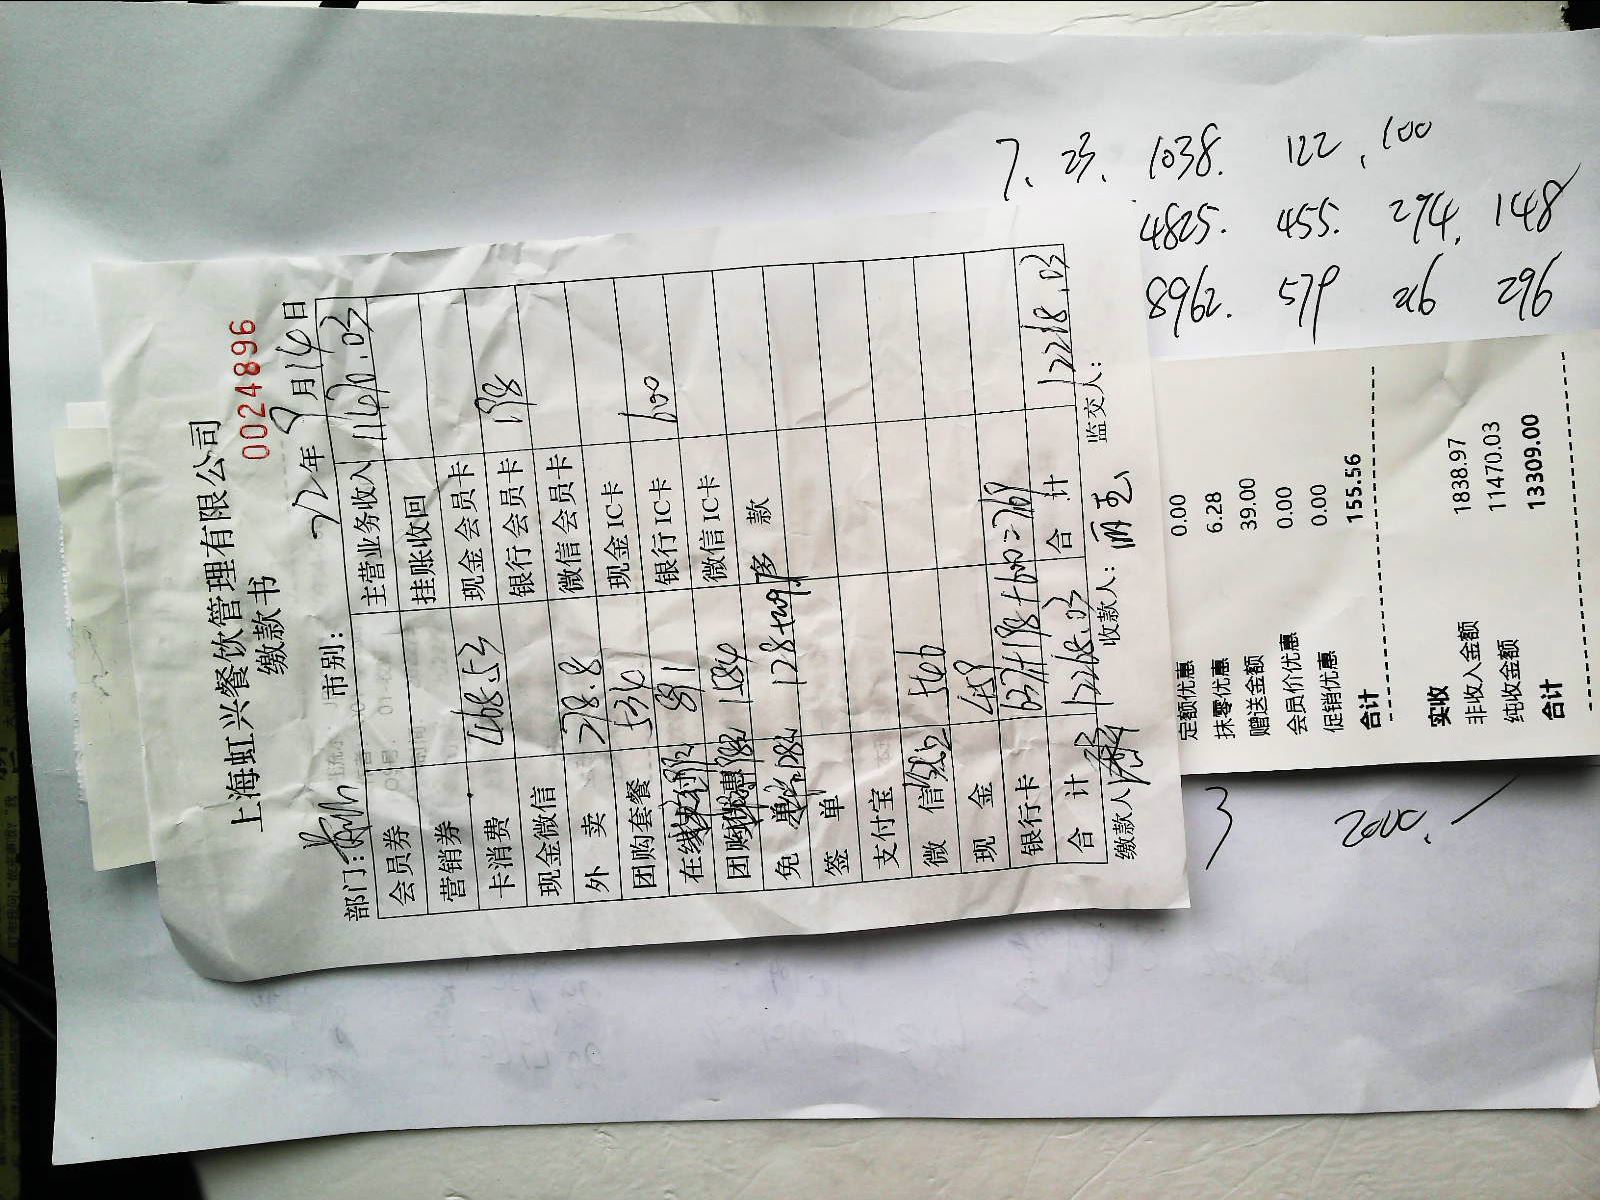 上海虹兴餐饮管理有限公司
缴款书
0024896
部门: 市别: 22年9月14日
会员券 主营业务收入 11470.03
营销券 挂账收回
卡消费 468.53 现金会员卡
现金微信 银行会员卡 198
外 卖 278.8 微信会员卡
团购套餐 536 现金IC卡
在线支付 891 银行IC卡 600
团购优惠 1584 微信IC卡
免 单 128 款
签 单
支付宝
微 信 546
现 金 459
银行卡
合 计 12268.03 合 计 12268.03
缴款人: 收款人: 监交人:
7. 23. 1038. 122, 100
4825. 455. 294, 148
8962. 579 296
定额优惠 0.00
抹零优惠 6.28
赠送金额 39.00
会员价优惠 0.00
促销优惠 0.00
合计 155.56
实收
非收入金额 1838.97
纯收金额 11470.03
合计 13309.00
3
2000.